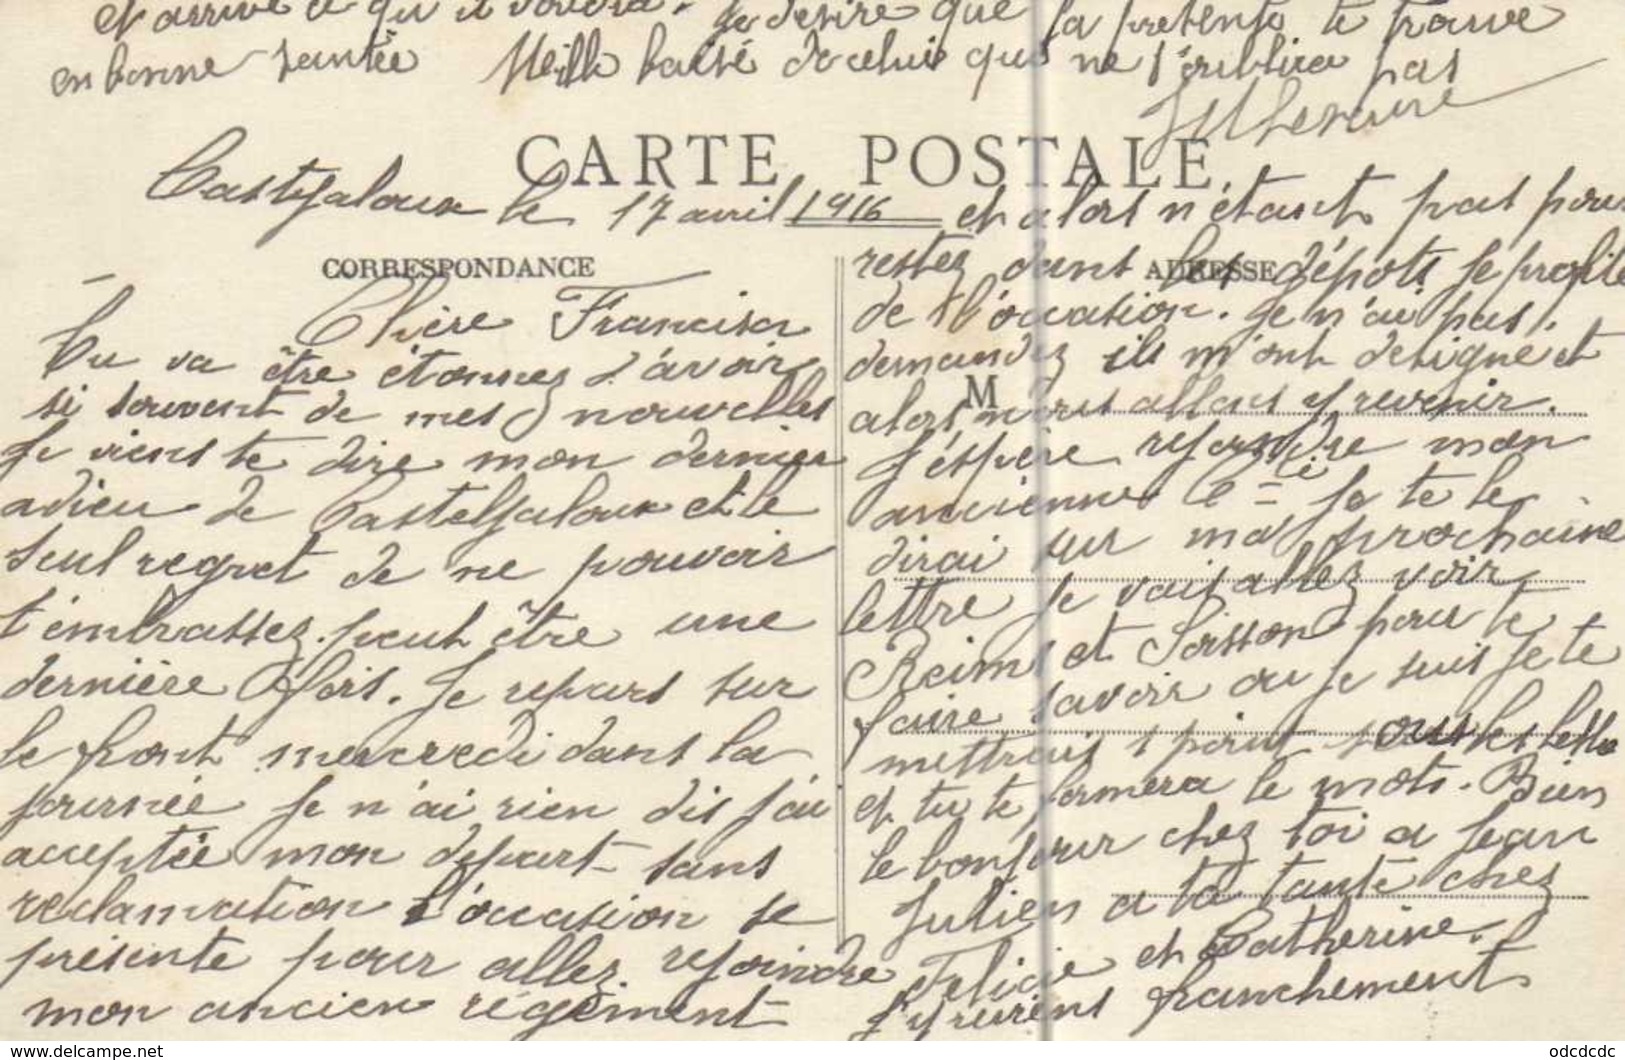 et arrive ce qu'il voudra. Je desire que la presente te trouve
en bonne santée Mille baisé de celui qui ne t'oublira pas
CARTE POSTALE
Casteljaloux le 17 avril 1916
CORRESPONDANCE
Chère Francisca
Tu va être étonnez d'avoir
si souvent de mes nouvelles
Je viens te dire mon dernier
adieu de Casteljaloux et le
seul regret de ne pouvoir
t'embrassez peut être une
dernière fois. Je repars sur
le front mercredi dans la
journée Je n'ai rien dis j'ai
acceptée mon depart sans
reclamation l'occasion se
présente pour allez rejoindre
mon ancien régement
et alors n'étant pas pour
restez dans les dépots je profite
ADRESSE
de l'occasion. Je n'ai pas
demandez ils m'ont designé et
M
alors nous allons y revenir.
J'éspère rejoindre mon
ancienne Cie Je te le
dirai sur ma prochaine
lettre je vais allez voir
Reims et Soisson pour te
faire savoir ou je suis je te
mettrais 1 point sous les lettre
et tu te formera le mots. Bien
le bonjour chez toi a Jean
Julien a ta tante chez
Felicie et Catherine.
J'y reviens franchement
odcdcdc